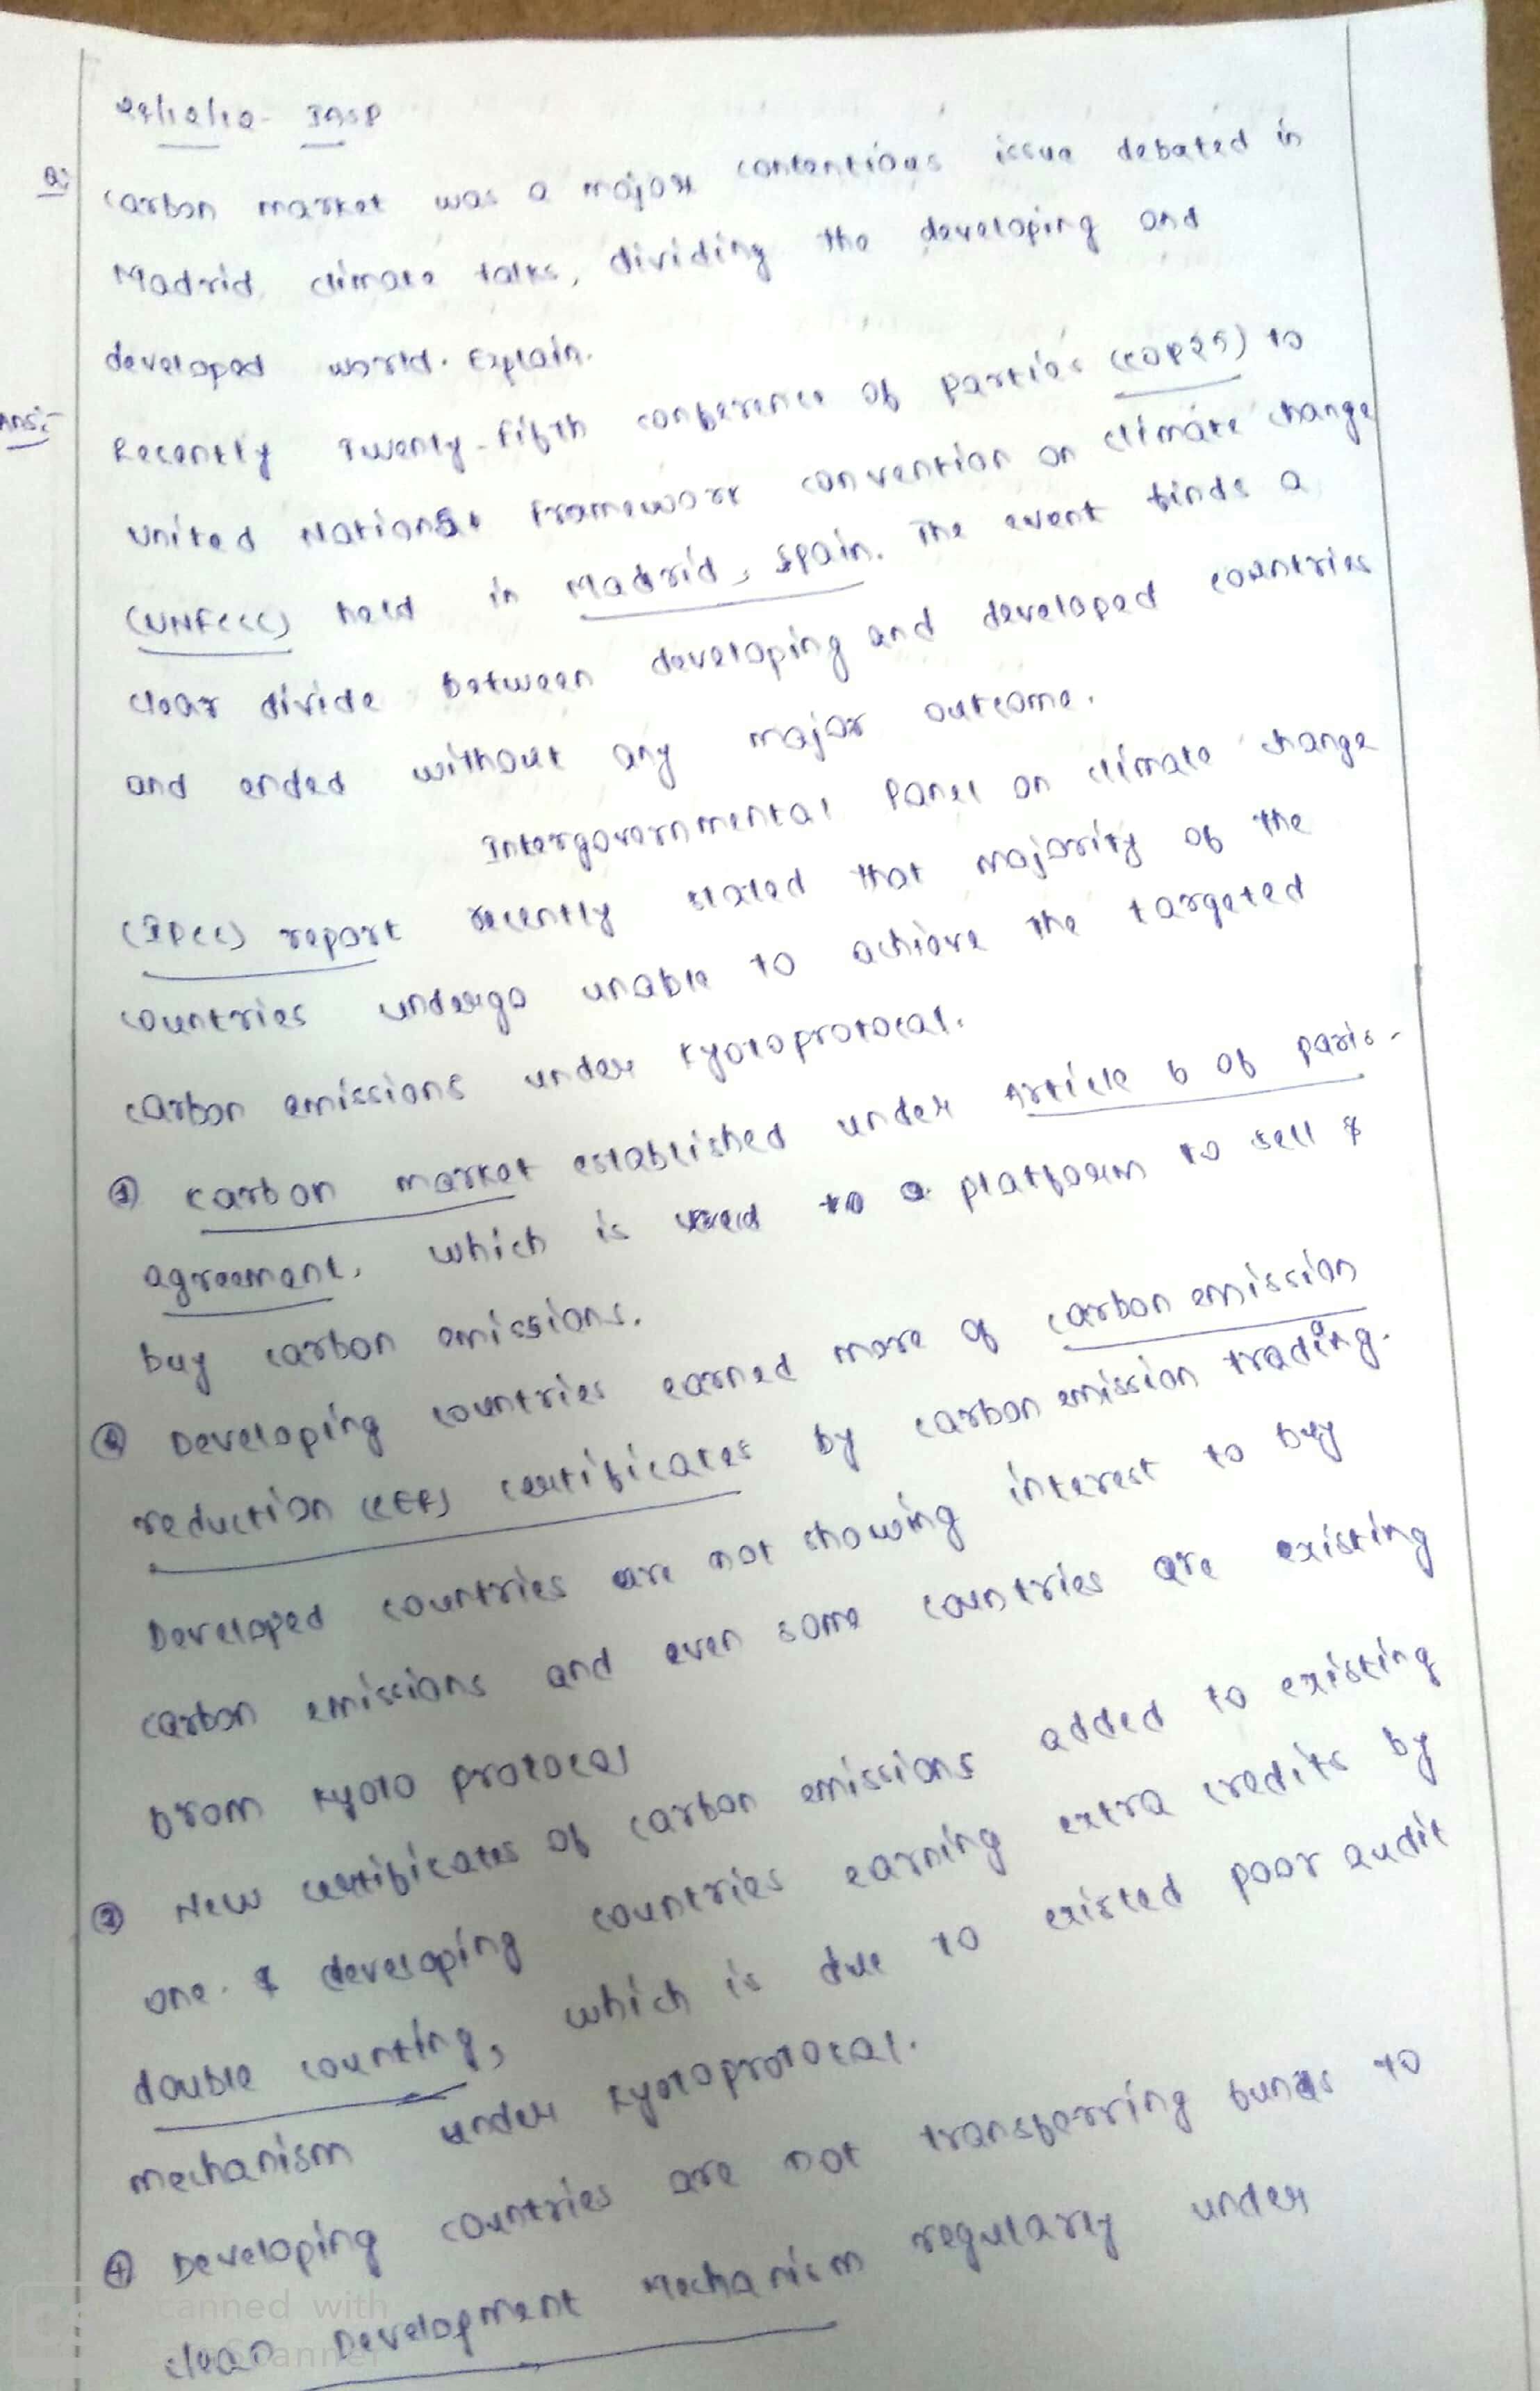 IASP
Q: carbon market was a major contentious issue debated in
Madrid climate talks, dividing the developing and
developed world. Explain.
Ans:- Recently Twenty-Fifth conference of parties (COP25) to
United Nations Framework convention on climate change
(UNFCCC) held in Madrid, Spain. The event finds a
clear divide between developing and developed countries
and ended without any major outcome.
Intergovernmental Panel on climate change
(IPCC) report recently stated that majority of the
countries undergo unable to achieve the targeted
carbon emissions under kyotoprotocal.
① carbon market established under Article 6 of paris-
agreement, which is used to a platform to sell &
buy carbon emissions.
② Developing countries earned more of carbon emission
reduction (CER) certificates by carbon emission trading.
Developed countries are not showing interest to buy
carbon emissions and even some countries are existing
from kyoto protocol
③ New certificates of carbon emissions added to existing
one. & developing countries earning extra credits by
double counting, which is due to existed poor audit
mechanism under kyotoprotocal.
④ Developing countries are not transferring funds to
clean Development Mechanism regularly under
canned with